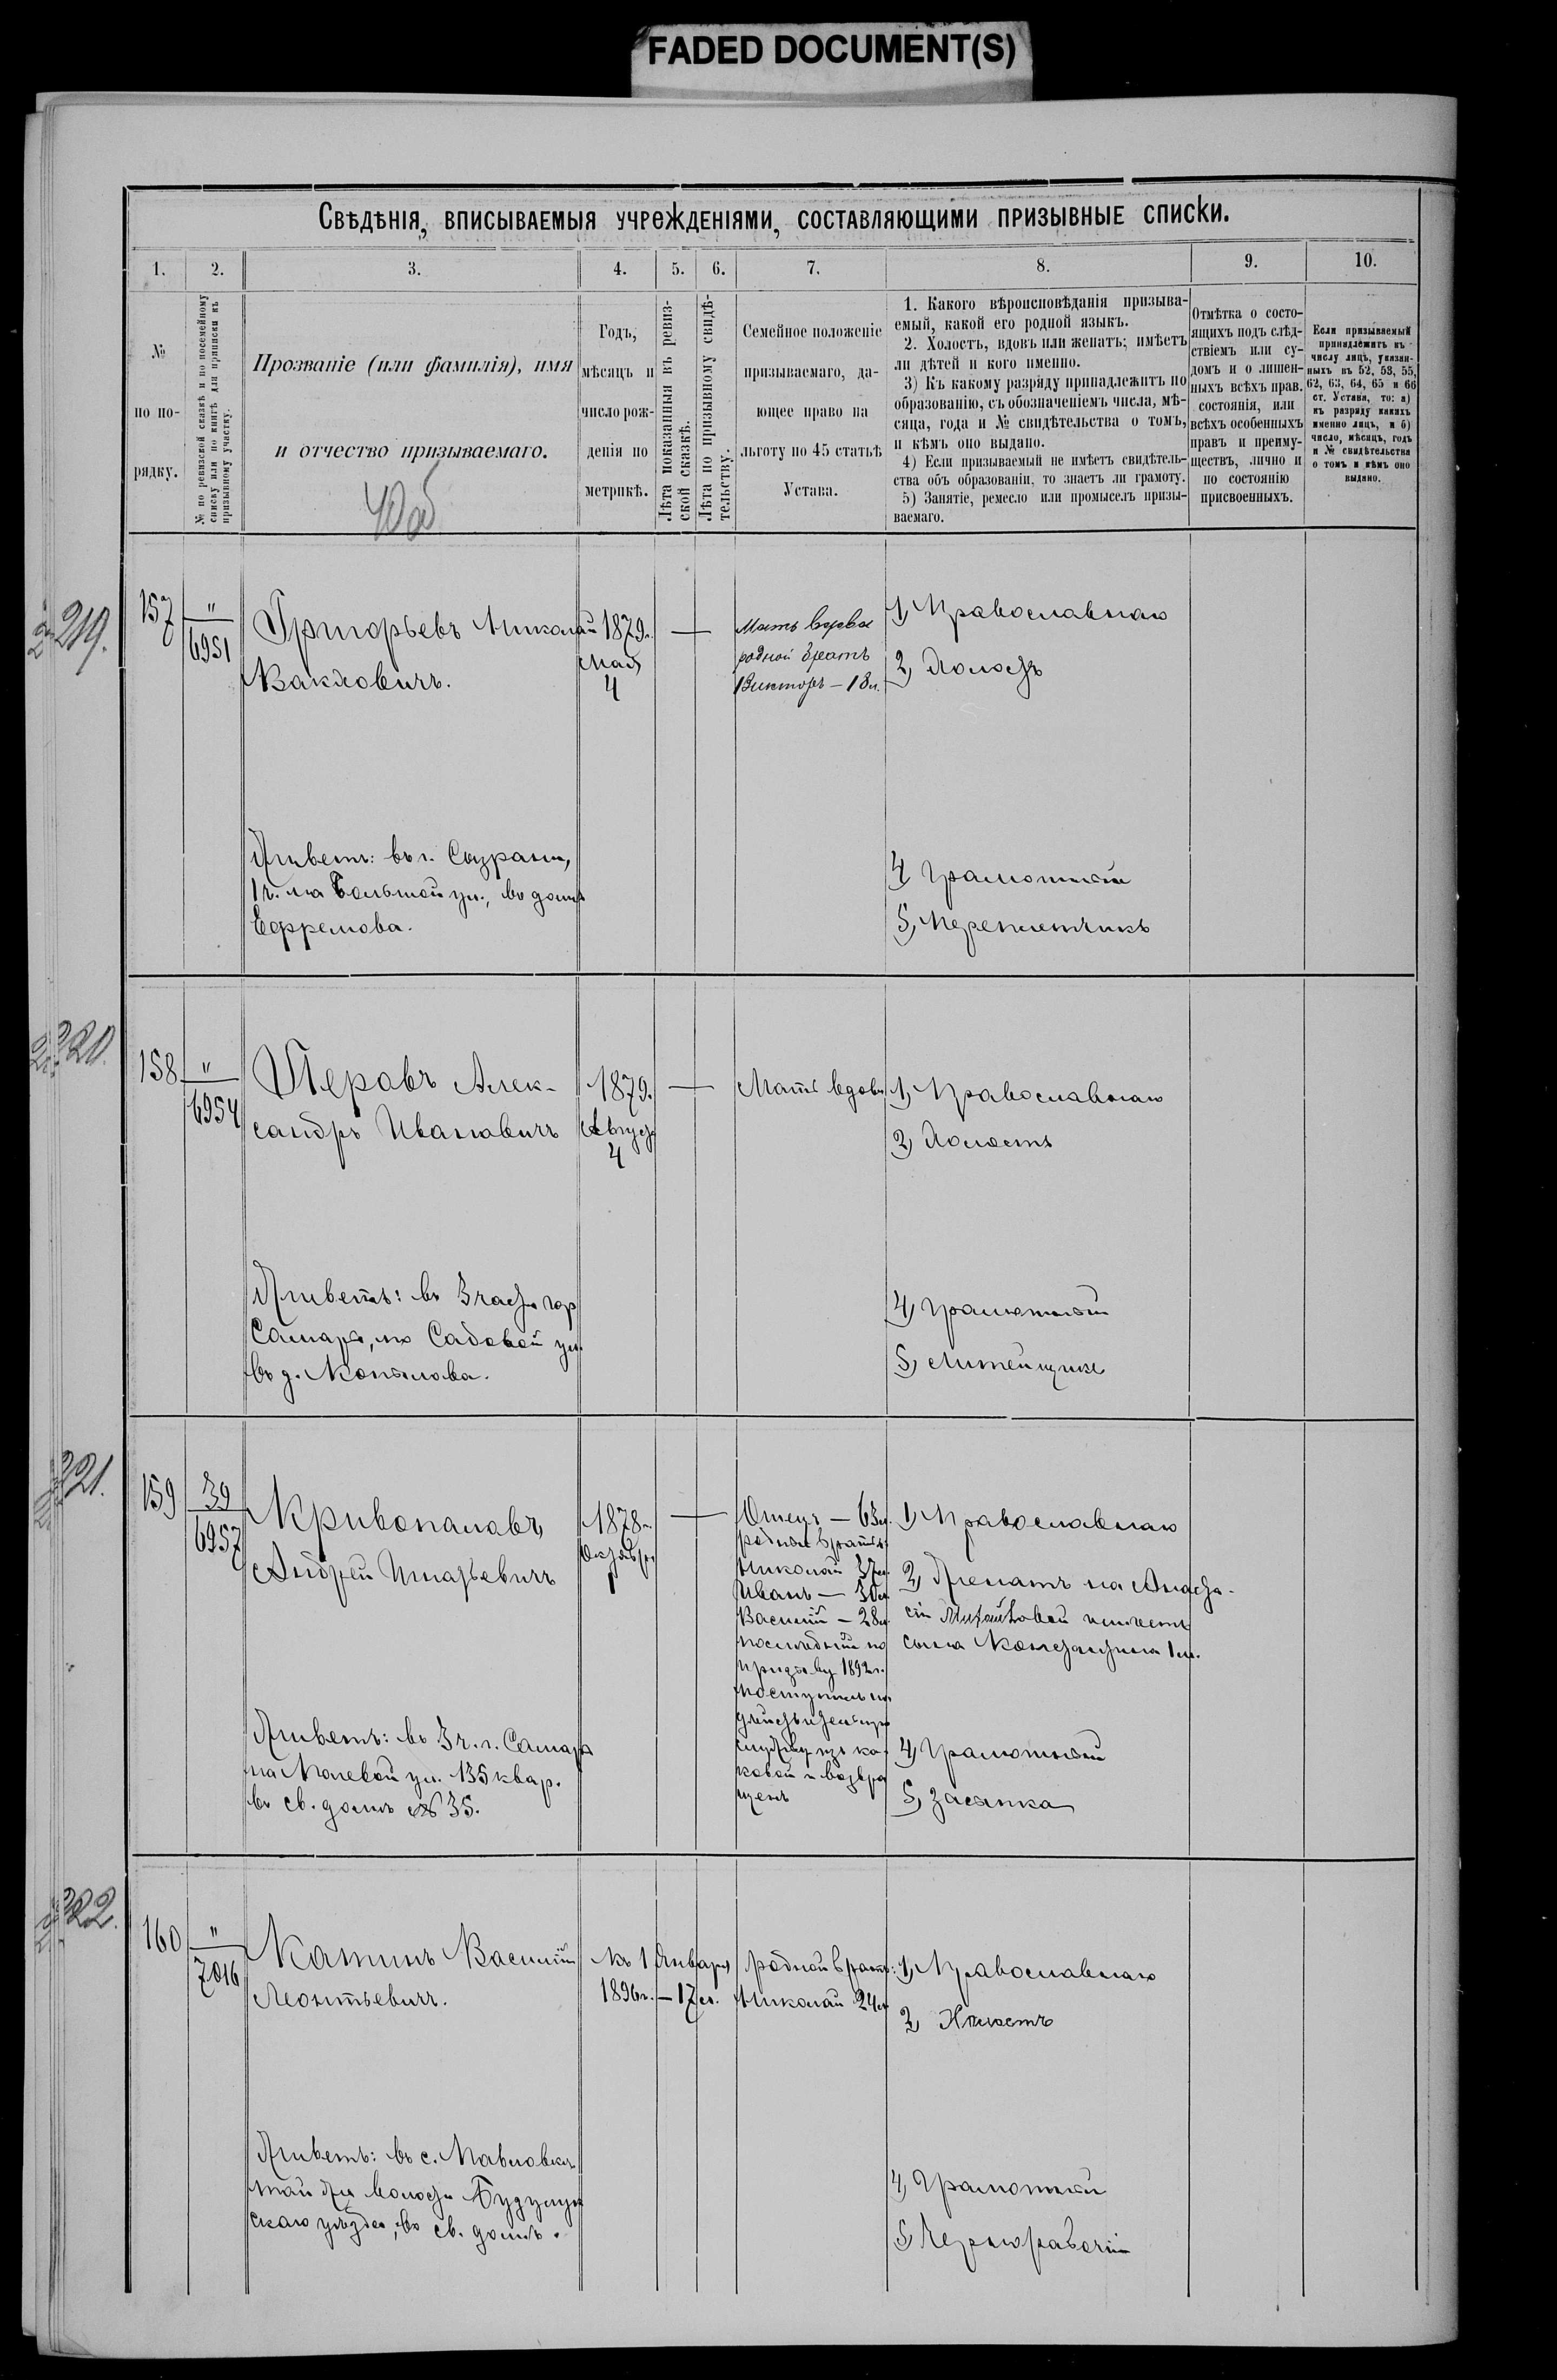 FADED DOCUMENT(S)
Свѣдѣнія, вписываемыя учрежденіями, составляющими призывные списки.
1. 2. 3. 4. 5. 6. 7. 8. 9. 10.
№
по по-
рядку.
№ по ревизской сказкѣ и по посемейному
списку или по книгѣ для приписки къ
призывному участку.
Прозваніе (или фамилія), имя
и отчество призываемаго.
Годъ,
мѣсяцъ и
число рож-
денія по
метрикѣ.
Лѣта показанныя въ ревиз-
ской сказкѣ.
Лѣта по призывному свидѣ-
тельству.
Семейное положеніе
призываемаго, да-
ющее право на
льготу по 45 статьѣ
Устава.
1. Какого вѣроисповѣданія призыва-
емый, какой его родной языкъ.
2. Холостъ, вдовъ или женатъ; имѣетъ
ли дѣтей и кого именно.
3) Къ какому разряду принадлежитъ по
образованію, съ обозначеніемъ числа, мѣ-
сяца, года и № свидѣтельства о томъ,
и кѣмъ оно выдано.
4) Если призываемый не имѣетъ свидѣтель-
ства объ образованіи, то знаетъ ли грамоту.
5) Занятіе, ремесло или промыселъ призы-
ваемаго.
Отмѣтка о состо-
ящихъ подъ слѣд-
ствіемъ или су-
домъ и о лишен-
ныхъ всѣхъ прав.
состоянія, или
всѣхъ особенныхъ
правъ и преиму-
ществъ, лично и
по состоянію
присвоенныхъ.
Если призываемый
принадлежитъ къ
числу лицъ, указан-
ныхъ въ 52, 53, 55,
62, 63, 64, 65 и 66
ст. Устава, то: а)
къ разряду какихъ
именно лицъ, и б)
число, мѣсяцъ, годъ
и № свидѣтельства
о томъ и кѣмъ оно
выдано.
219.
157
"
6951
Григорьевъ Николай
1879г.
Мая
4
Мать вдова
родной братъ
Викторъ – 18л.
1) Православнаго
2) Холостъ
Живетъ: въ г. Сызрани,
1 ч. на Большой ул., въ домѣ
Ефремова.
4) Грамотный
5) Переплетчикъ
220.
158
"
6954
Перовъ Алек-
сандръ Ивановичъ
1879.
Август
4
Мать вдова
1) Православнаго
2) Холостъ
Живетъ: въ 3 части гор
Самары, по Садовой ул.
въ д. Копылова.
4) Грамотный
5) Литейщикъ
221.
159
39
6957
Кривопаловъ
Андрей Игнатьевичъ
1878г.
Октября
1
Отецъ – 63л.
родные братья:
Николай 37л.
Иванъ – 30л
Василій – 28л
послѣдній по
призыву 1892г.
поступилъ на
дѣйствительную
службу изъ ка-
ковой и возвра
щенъ
1) Православнаго
2) Женатъ на Анаста-
сіи Михайловой имѣетъ
сына Константина 1 г.
Живетъ: въ 3 ч. г. Самары
на Полевой ул. 135 квар.
въ св. домѣ № 35.
4) Грамотный
5) Засыпка
222.
160
"
7016
Катинъ Василій
Леонтьевичъ.
къ 1 Января
1896г. – 17 л.
родной братъ:
Николай 24л
1) Православнаго
2) Холостъ
Живетъ: въ с. Павловкѣ
той же волости Бузулук
скаго уѣзда, въ св. домѣ.
4) Грамотный
5) Чернорабочій